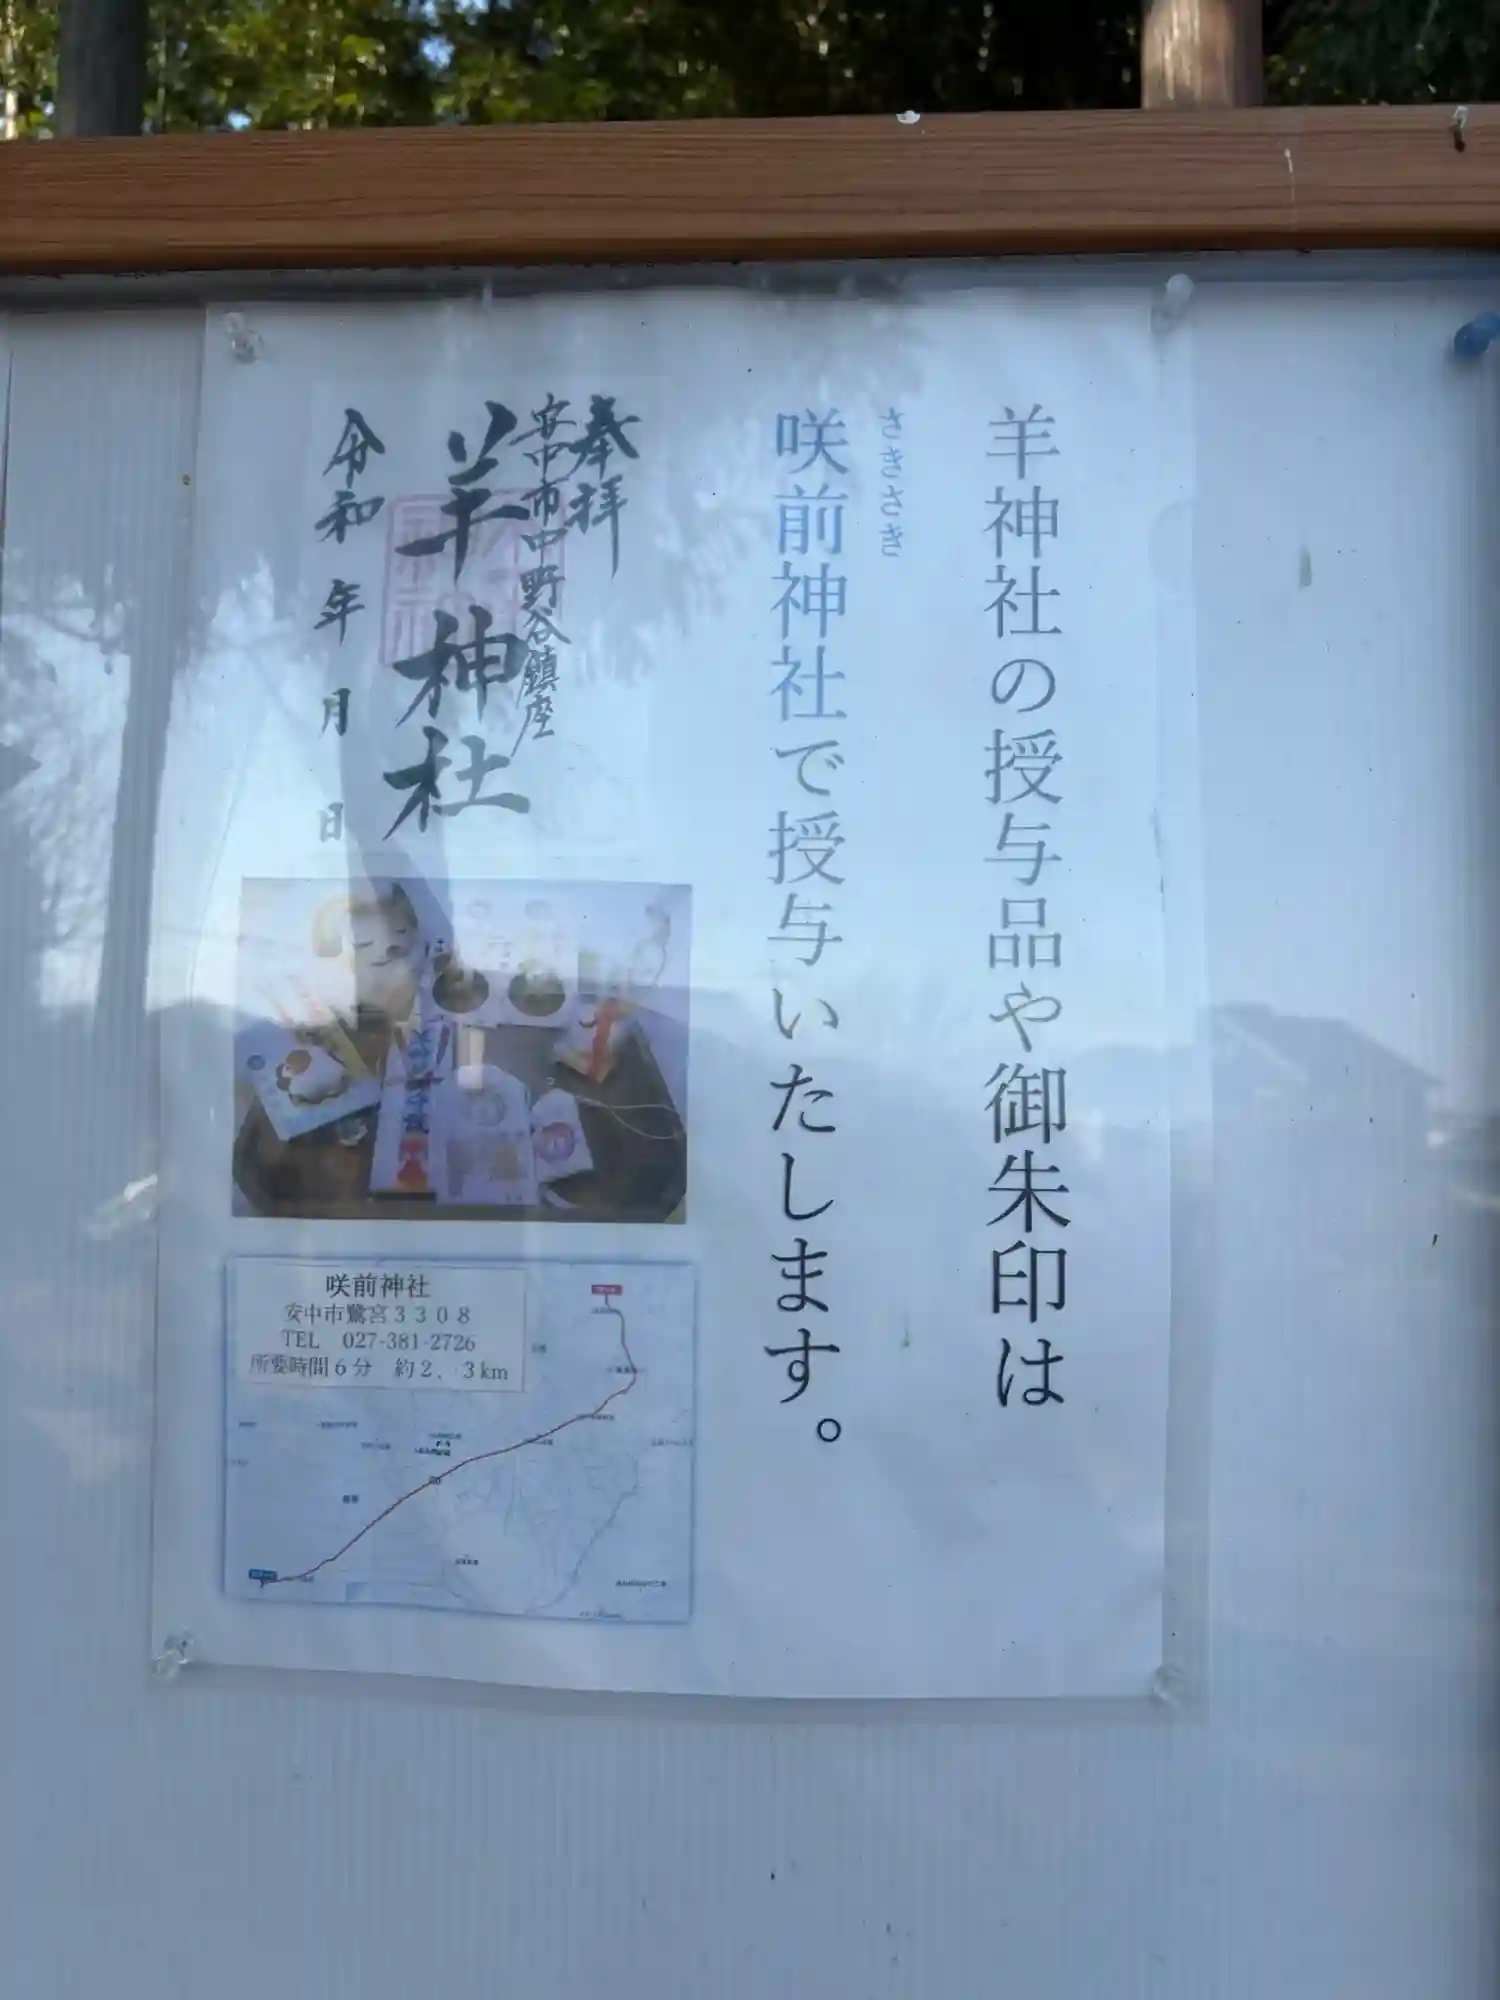 羊神社の授与品や御朱印は
さきさき
咲前神社で授与いたします。
奉拝
安中市中野谷鎮座
羊神社
令和 年 月 日
咲前神社
安中市鷺宮3308
TEL 027-381-2726
所要時間6分 約2.3km